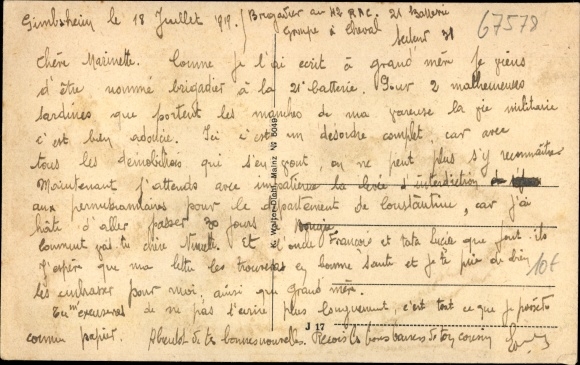 Gimbsheim le 18 Juillet 1919. / Brigadier au 42 RAC. 21 Batterie
Groupe à Cheval
Secteur 31
67578
Chère Marinette. Comme je l'ai écrit à grand mère je viens
d'être nommé brigadier à la 21e batterie. Pour 2 malheureuses
sardines que portent les manches de ma vareuse la vie militaire
c'est bien adoucie. Ici c'est un désordre complet, car avec
tous les démobilisés qui s'en vont, on ne peut plus s'y reconnaître
Maintenant j'attends avec impatience la levée d'interdiction
aux permissionnaires pour le département de Constantine, car j'ai
hâte d'aller passer 30 jours
Comment vas tu chère Ninette. Et l'oncle François et tata Lucie que font ils
J'espère que ma lettre les trouvera en bonne santé et je te prie de bien
les embrasser pour moi, ainsi que grand mère.
Tu m'excuseras de ne pas t'écrire plus longuement, c'est tout ce que je possède
comme papier. A bientôt de tes bonnes nouvelles. Reçois les bons baisers de ton cousin
10€
K. Walter Diehl, Mainz № 8049
J 17